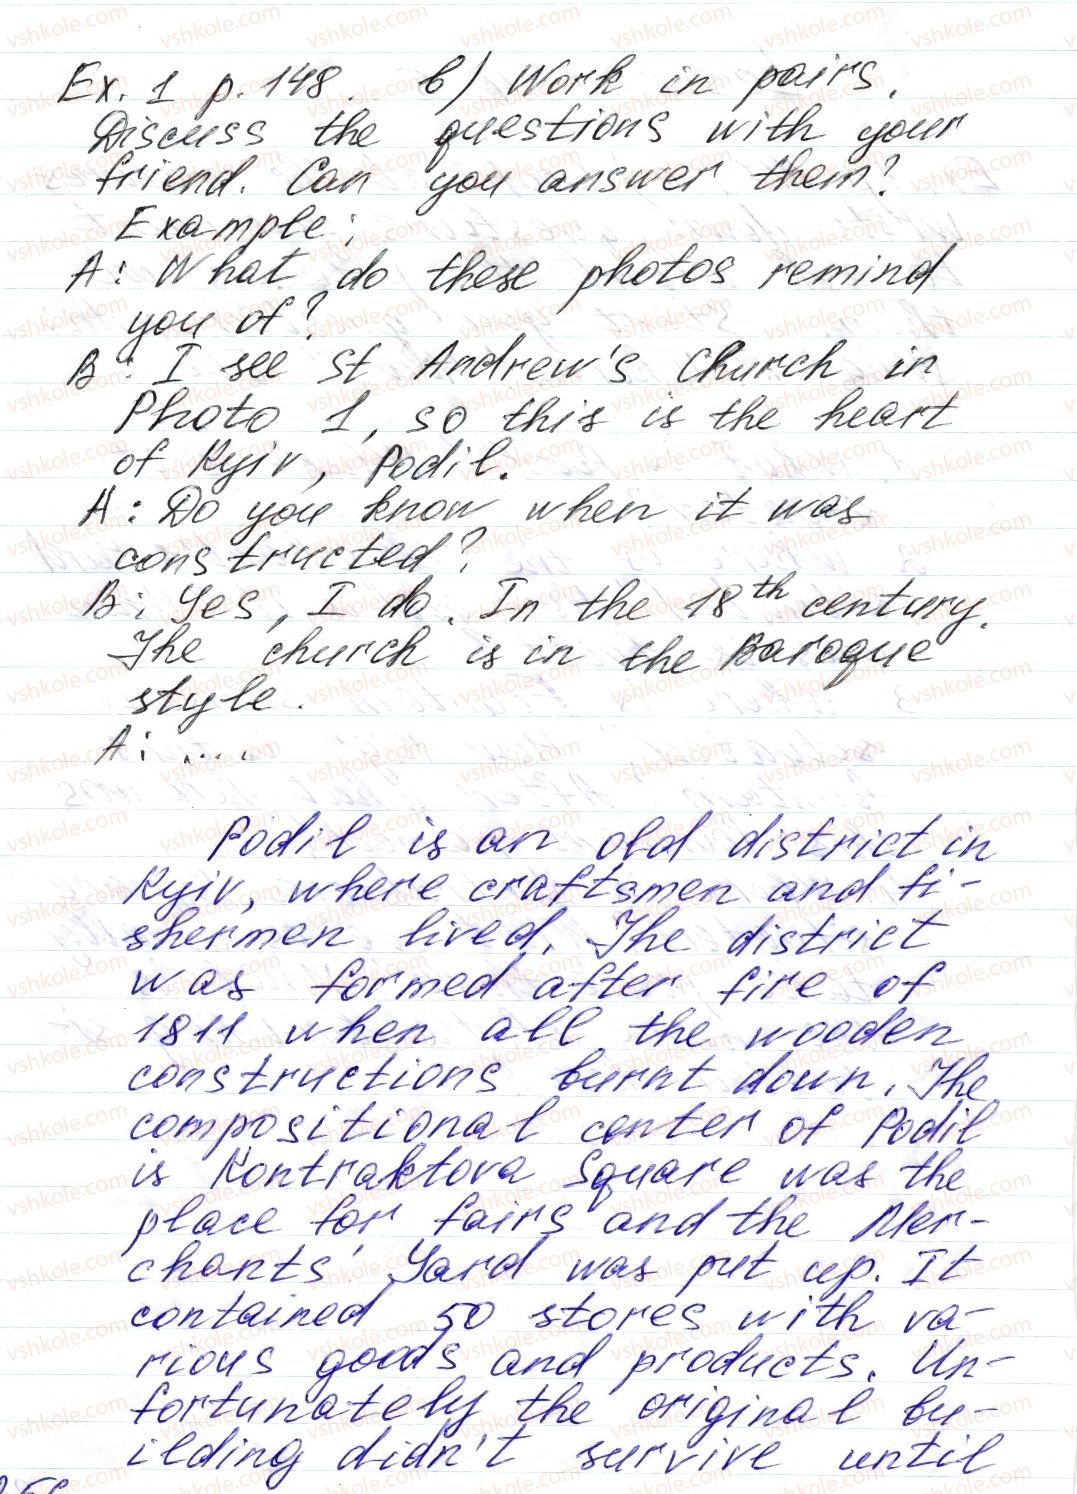 Ex. 1 p. 148. b) Work in pairs.
Discuss the questions with your
friend. Can you answer them?
Example:
A: What do these photos remind
you of?
B: I see St Andrew's Church in
Photo 1, so this is the heart
of Kyiv, Podil.
A: Do you know when it was
constructed?
B: Yes, I do. In the 18th century.
The church is in the Baroque
style.
A: ....
Podil is an old district in
Kyiv, where craftsmen and fi-
shermen lived. The district
was formed after fire of
1811 when all the wooden
constructions burnt down. The
compositional center of Podil
is Kontraktova Square was the
place for fairs and the Mer-
chants' Yard was put up. It
contained 50 stores with va-
rious goods and products. Un-
fortunately the original bu-
ilding didn't survive until